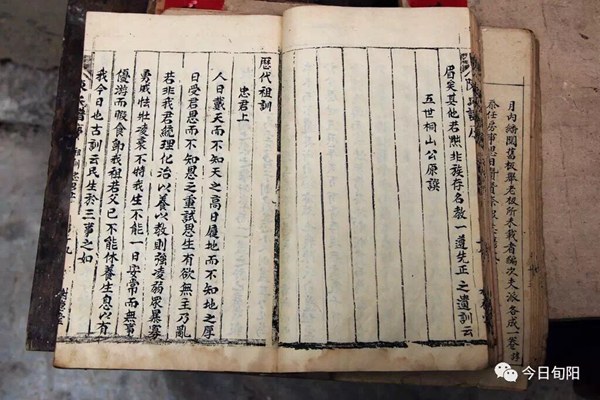 月內繙閱舊板舉老板所未載者編次夫派各成一卷
陳氏譜序
眉矣其他君黙非族存名教一遵先正之遺訓云
五世桐山公原譔
歷代祖訓
忠君上
人日戴天而不知天之高日履地而不知地之厚
日受君恩而不知恩之重試思生有欲無主乃亂
若非我君統理化治以養以教則強凌弱眾暴寡
勇威怯壯凌衰不特我生不能一日安常而無事
優游而暇食卽我祖若父已不能休養生息以有
我今日也古訓云民生於三事之如
今日旬阳